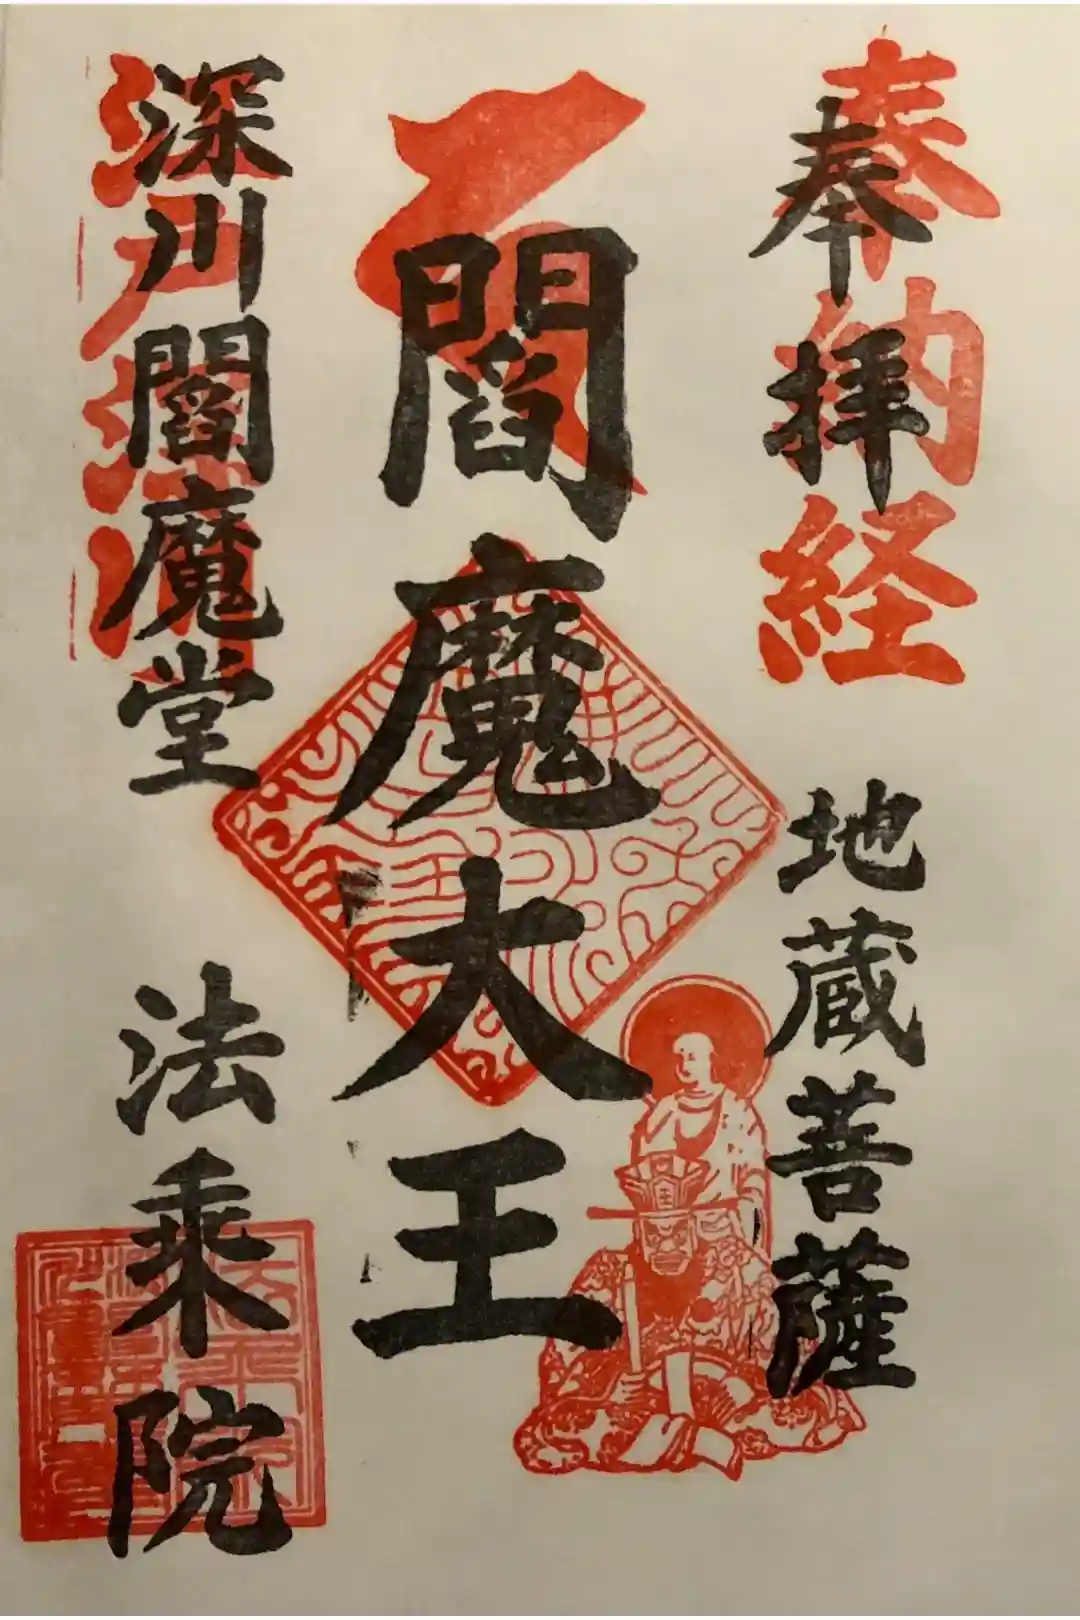 奉拝
奉納経
地蔵菩薩
閻魔大王
王
深川閻魔堂
法乗院